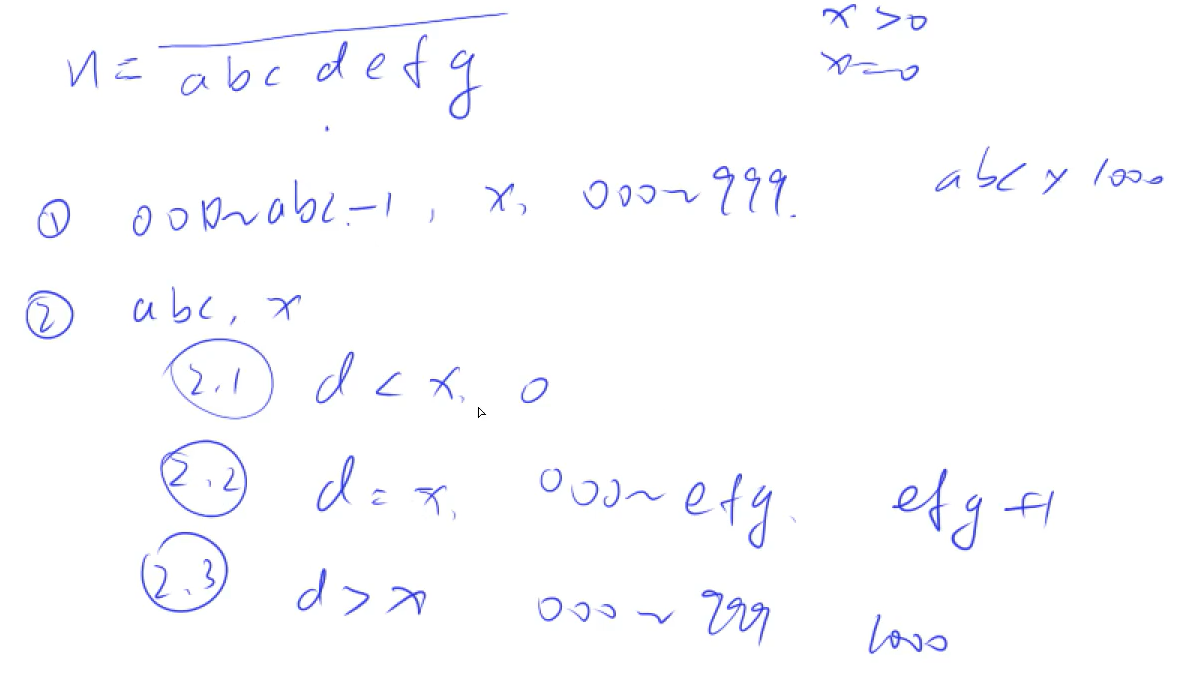 x > 0
x = 0
n = abcdefg
① 000~abc-1, x, 000~999. abc × 1000
② abc, x
2.1 d < x, 0
2.2 d = x, 000~efg. efg+1
2.3 d > x 000~999 1000